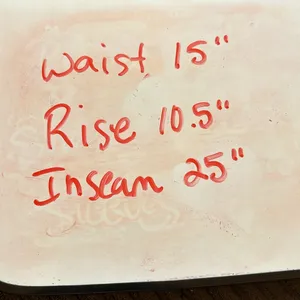 Waist 15"
Rise 10.5"
Inseam 25"